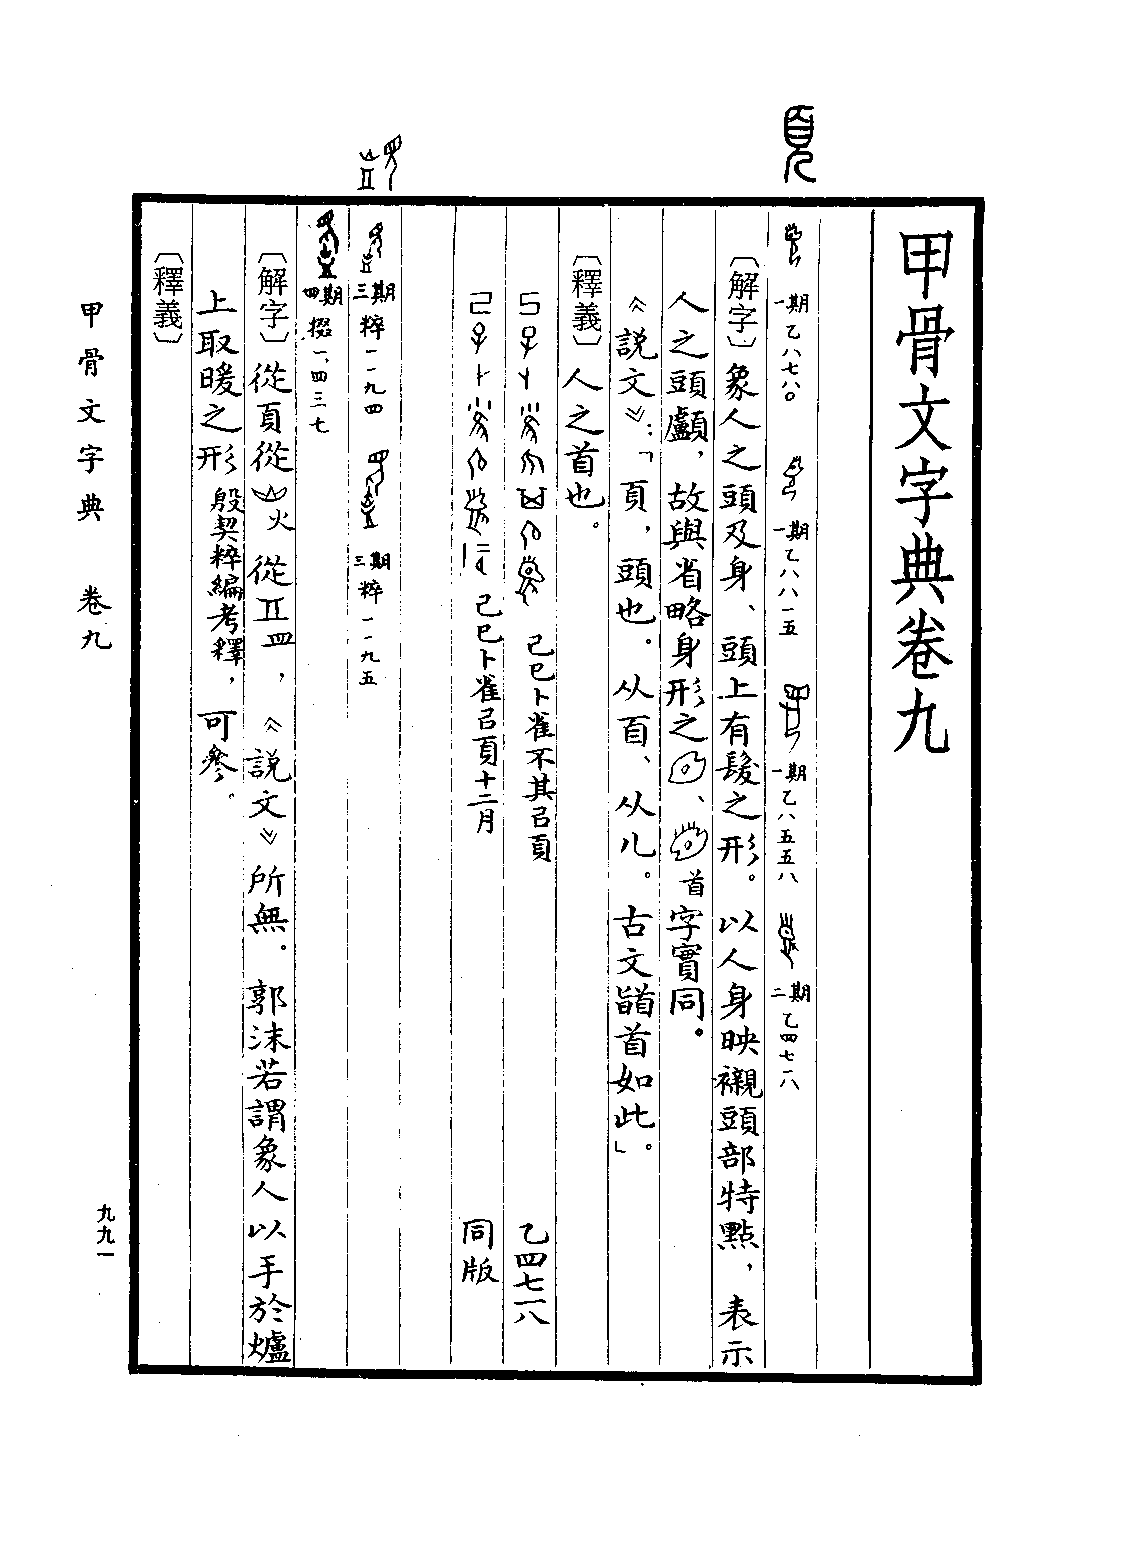 甲骨文字典卷九
頁
一期乙八七八〇
一期乙八八一五
一期乙八五五八
二期乙四七一八
〔解字〕象人之頭及身、頭上有髮之形。以人身映襯頭部特點，表示
人之頭顱，故與省略身形之、首字實同。
《說文》：「頁，頭也。从𦣻、从儿。古文𩠐首如此」。
〔釋義〕人之首也。
己巳卜雀不其㠯頁 乙四七一八
己巳卜雀㠯頁十二月 同版
三期粹一一九四
三期粹一一九五
四期掇一、四三七
〔解字〕從頁從火從皿，《說文》所無。郭沫若謂象人以手於爐
上取暖之形殷契粹編考釋，可參。
〔釋義〕
甲骨文字典 卷九
九九一